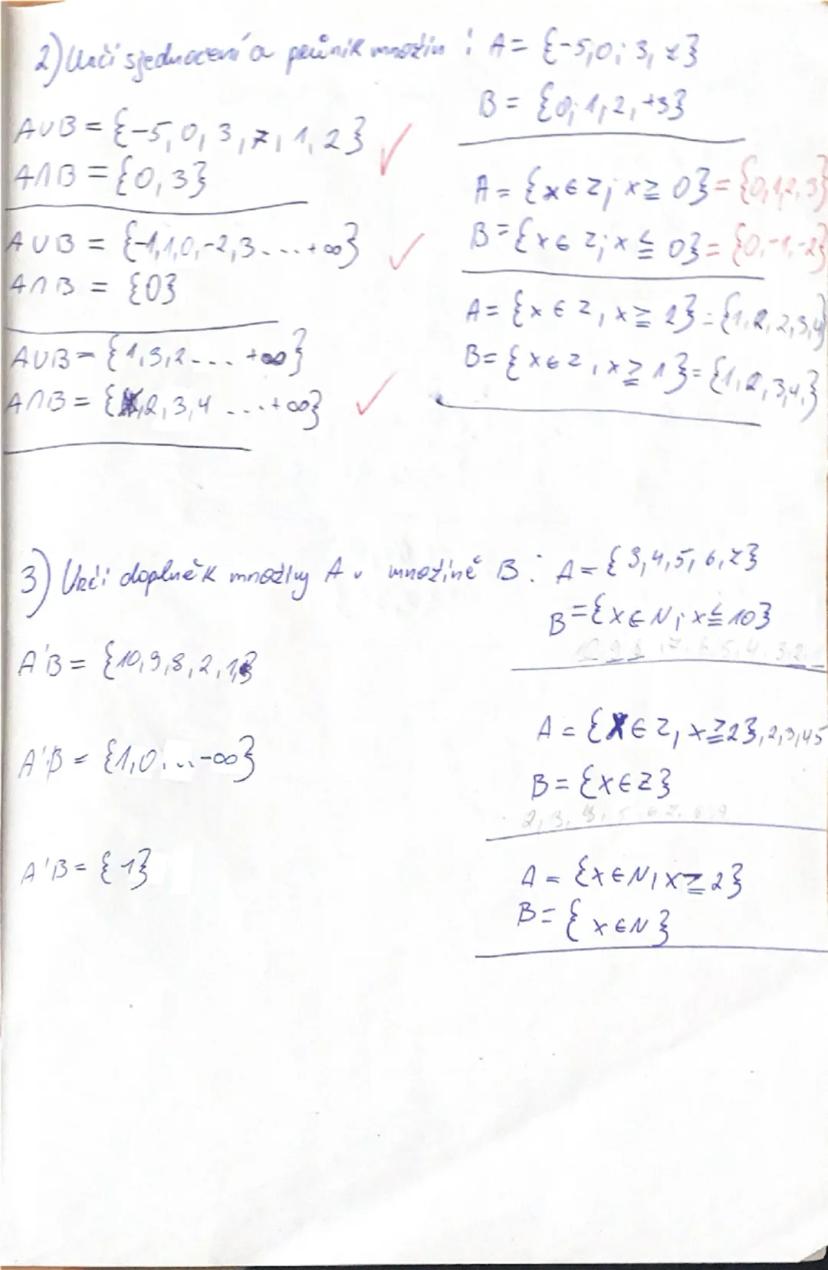 2) Urči sjednocení a průnik množin : A = {-5,0; 3, 7}
B = {0, 1, 2, +3}
A∪B = {-5, 0, 3, 7, 1, 2} ✓
A∩B = {0, 3}
A = {x∈Z; x≧0} = {0,1,2,3}
B = {x∈Z; x≦0} = {0,-1,-2}
A∪B = {-1,1,0,-2,3...+∞} ✓
A∩B = {0}
A = {x∈Z, x≧2} = {1,2,2,3,4
B = {x∈Z, x≧1} = {1,2,3,4,}
A∪B = {1,3,2...+∞}
A∩B = {2,3,4...+∞} ✓
3) Urči doplněk množiny A v množině B : A = {3,4,5,6,7}
B = {x∈N; x≦10}
A'B = {10,9,8,2,1}
A = {x∈Z, x≧2},2,3,45
B = {x∈Z}
A'B = {1,0...-∞}
A = {x∈N, x≧2}
B = {x∈N}
A'B = {1}